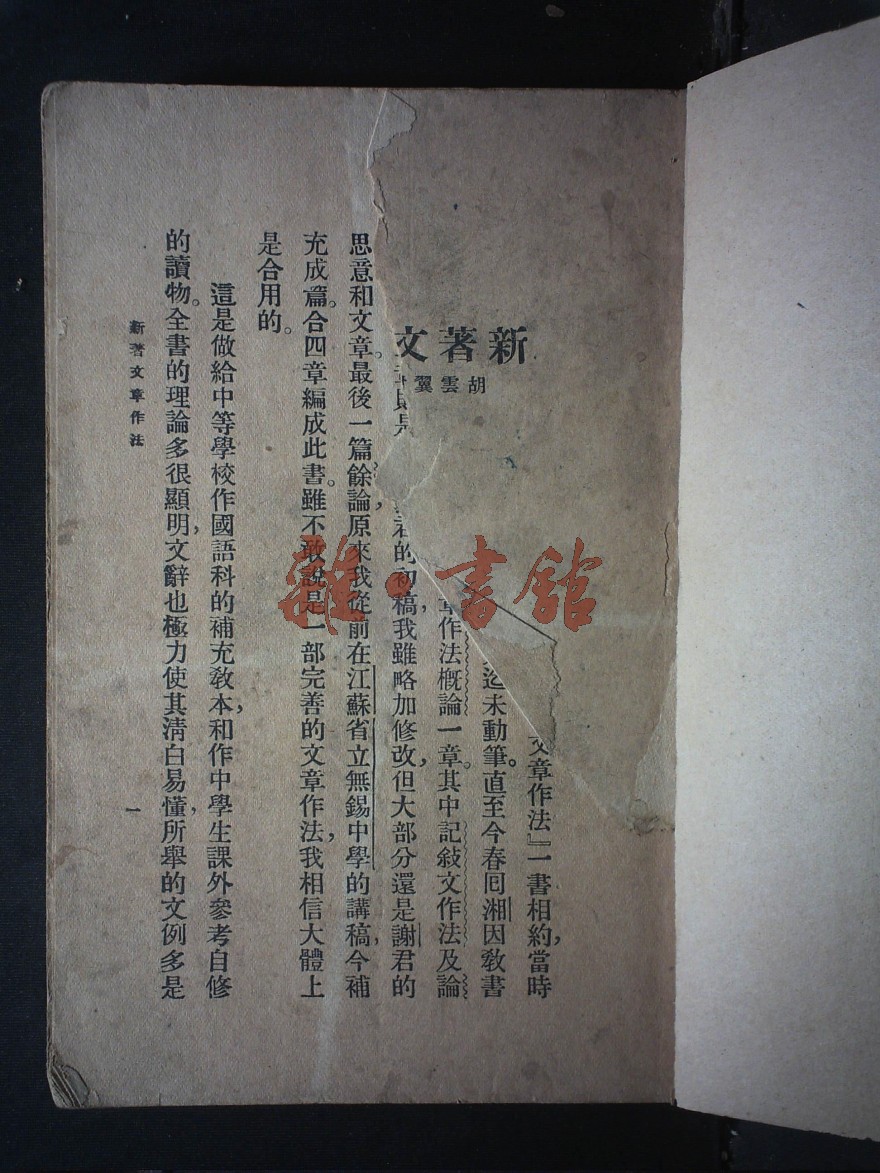 新著文
胡雲翼
文章作法』一書相約,當時
迄未動筆。直至今春囘湘因敎書
章作法槪論一章。其中記敍文作法及論
是君的初稿,我雖略加修改,但大部分還是謝君的
思意和文章。最後一篇餘論,原來我從前在江蘇省立無錫中學的講稿,今補
充成篇。合四章編成此書。雖不敢說是一部完善的文章作法,我相信大體上
是合用的。
這是做給中等學校作國語科的補充敎本,和作中學生課外參考自修
的讀物。全書的理論多很顯明,文辭也極力使其淸白易懂,所舉的文例多是
新著文章作法
一
雜·書館